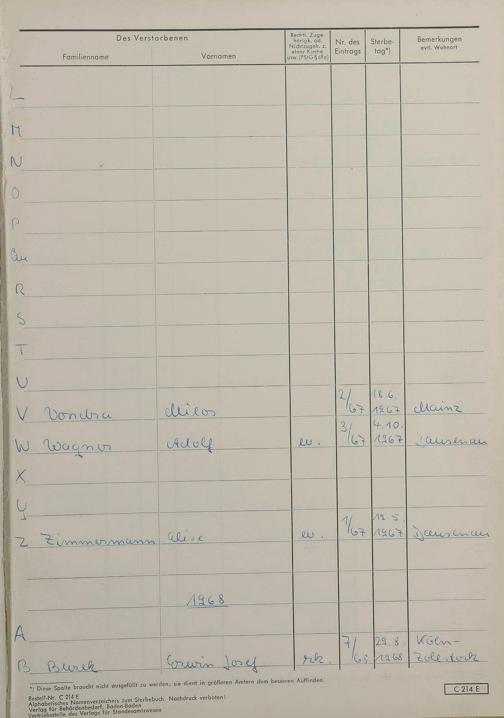 Des Verstorbenen
Familienname Vornamen
Rechtl. Zuge-
hörigk. od.
Nichtzugeh. z.
einer Kirche
usw. (PStG § 69a)
Nr. des
Eintrags
Sterbe-
tag*)
Bemerkungen
evtl. Wohnort
L
M
N
O
P
Qu
R
S
T
U
V Vondra Milos 2/67 18.6.1967 Mainz
W Wagner Adolf ev. 3/67 4.10.1967 Dausenau
X
Y
Z Zimmermann ev. 1/67 1967 Dausenau
1968
A
B Erwin Josef rk. 7/68 29.8.1968 Köln-
Zollstock
*) Diese Spalte braucht nicht ausgefüllt zu werden; sie dient in größeren Ämtern dem besseren Auffinden.
Bestell-Nr. C 214 E
Alphabetisches Namenverzeichnis zum Sterbebuch. Nachdruck verboten!
Verlag für Behördenbedarf, Baden-Baden
Vertriebsstelle des Verlags für Standesamtswesen
C 214 E